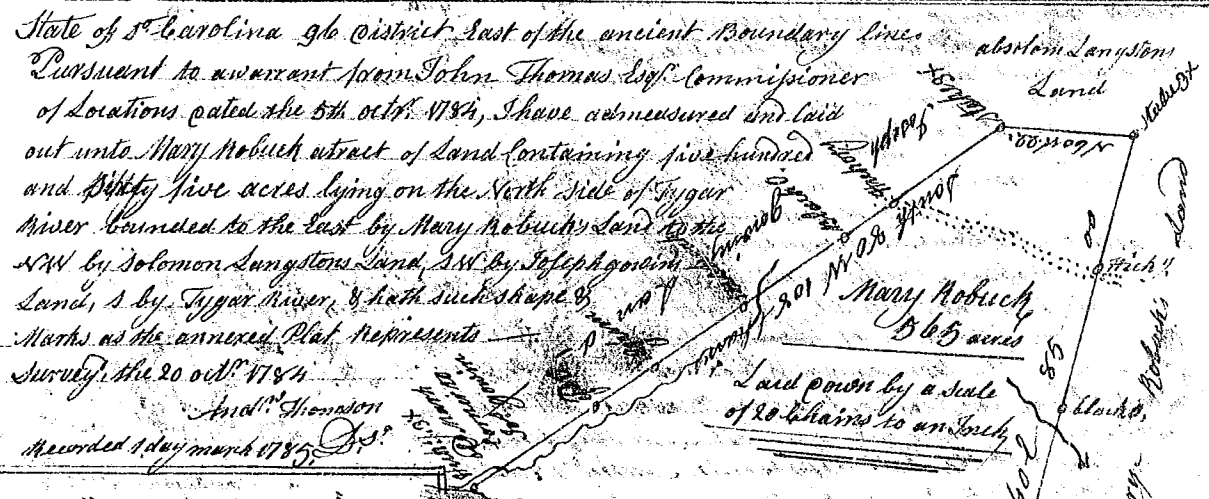 State of So Carolina 96 District East of the ancient Boundary line
Pursuant to a warrant from John Thomas Esqr. Commissioner
of Locations dated the 5th octr. 1784, I have admeasured and laid
out unto Mary Robuck a tract of Land Containing five hundred
and Sixty five acres lying on the North side of Tygar
River bounded to the East by Mary Robuck's Land to the
NW by Solomon Langstons Land, SW by Joseph gowins
Land, S by Tygar River, & hath such shape &
Marks as the annexed Plat Represents
Survey'd the 20 octr 1784
Andw Thomson
D.S.
Recorded 1 day march 1785
absolom Langstons
Land
Stake 3X
Stake 3X
Joseph
gowin
Land
South 60 W 108
Hick'y.
Mary Robuck
565 acres
Laid down by a scale
of 20 Chains to an Inch
black O.
85
Robuck's Land